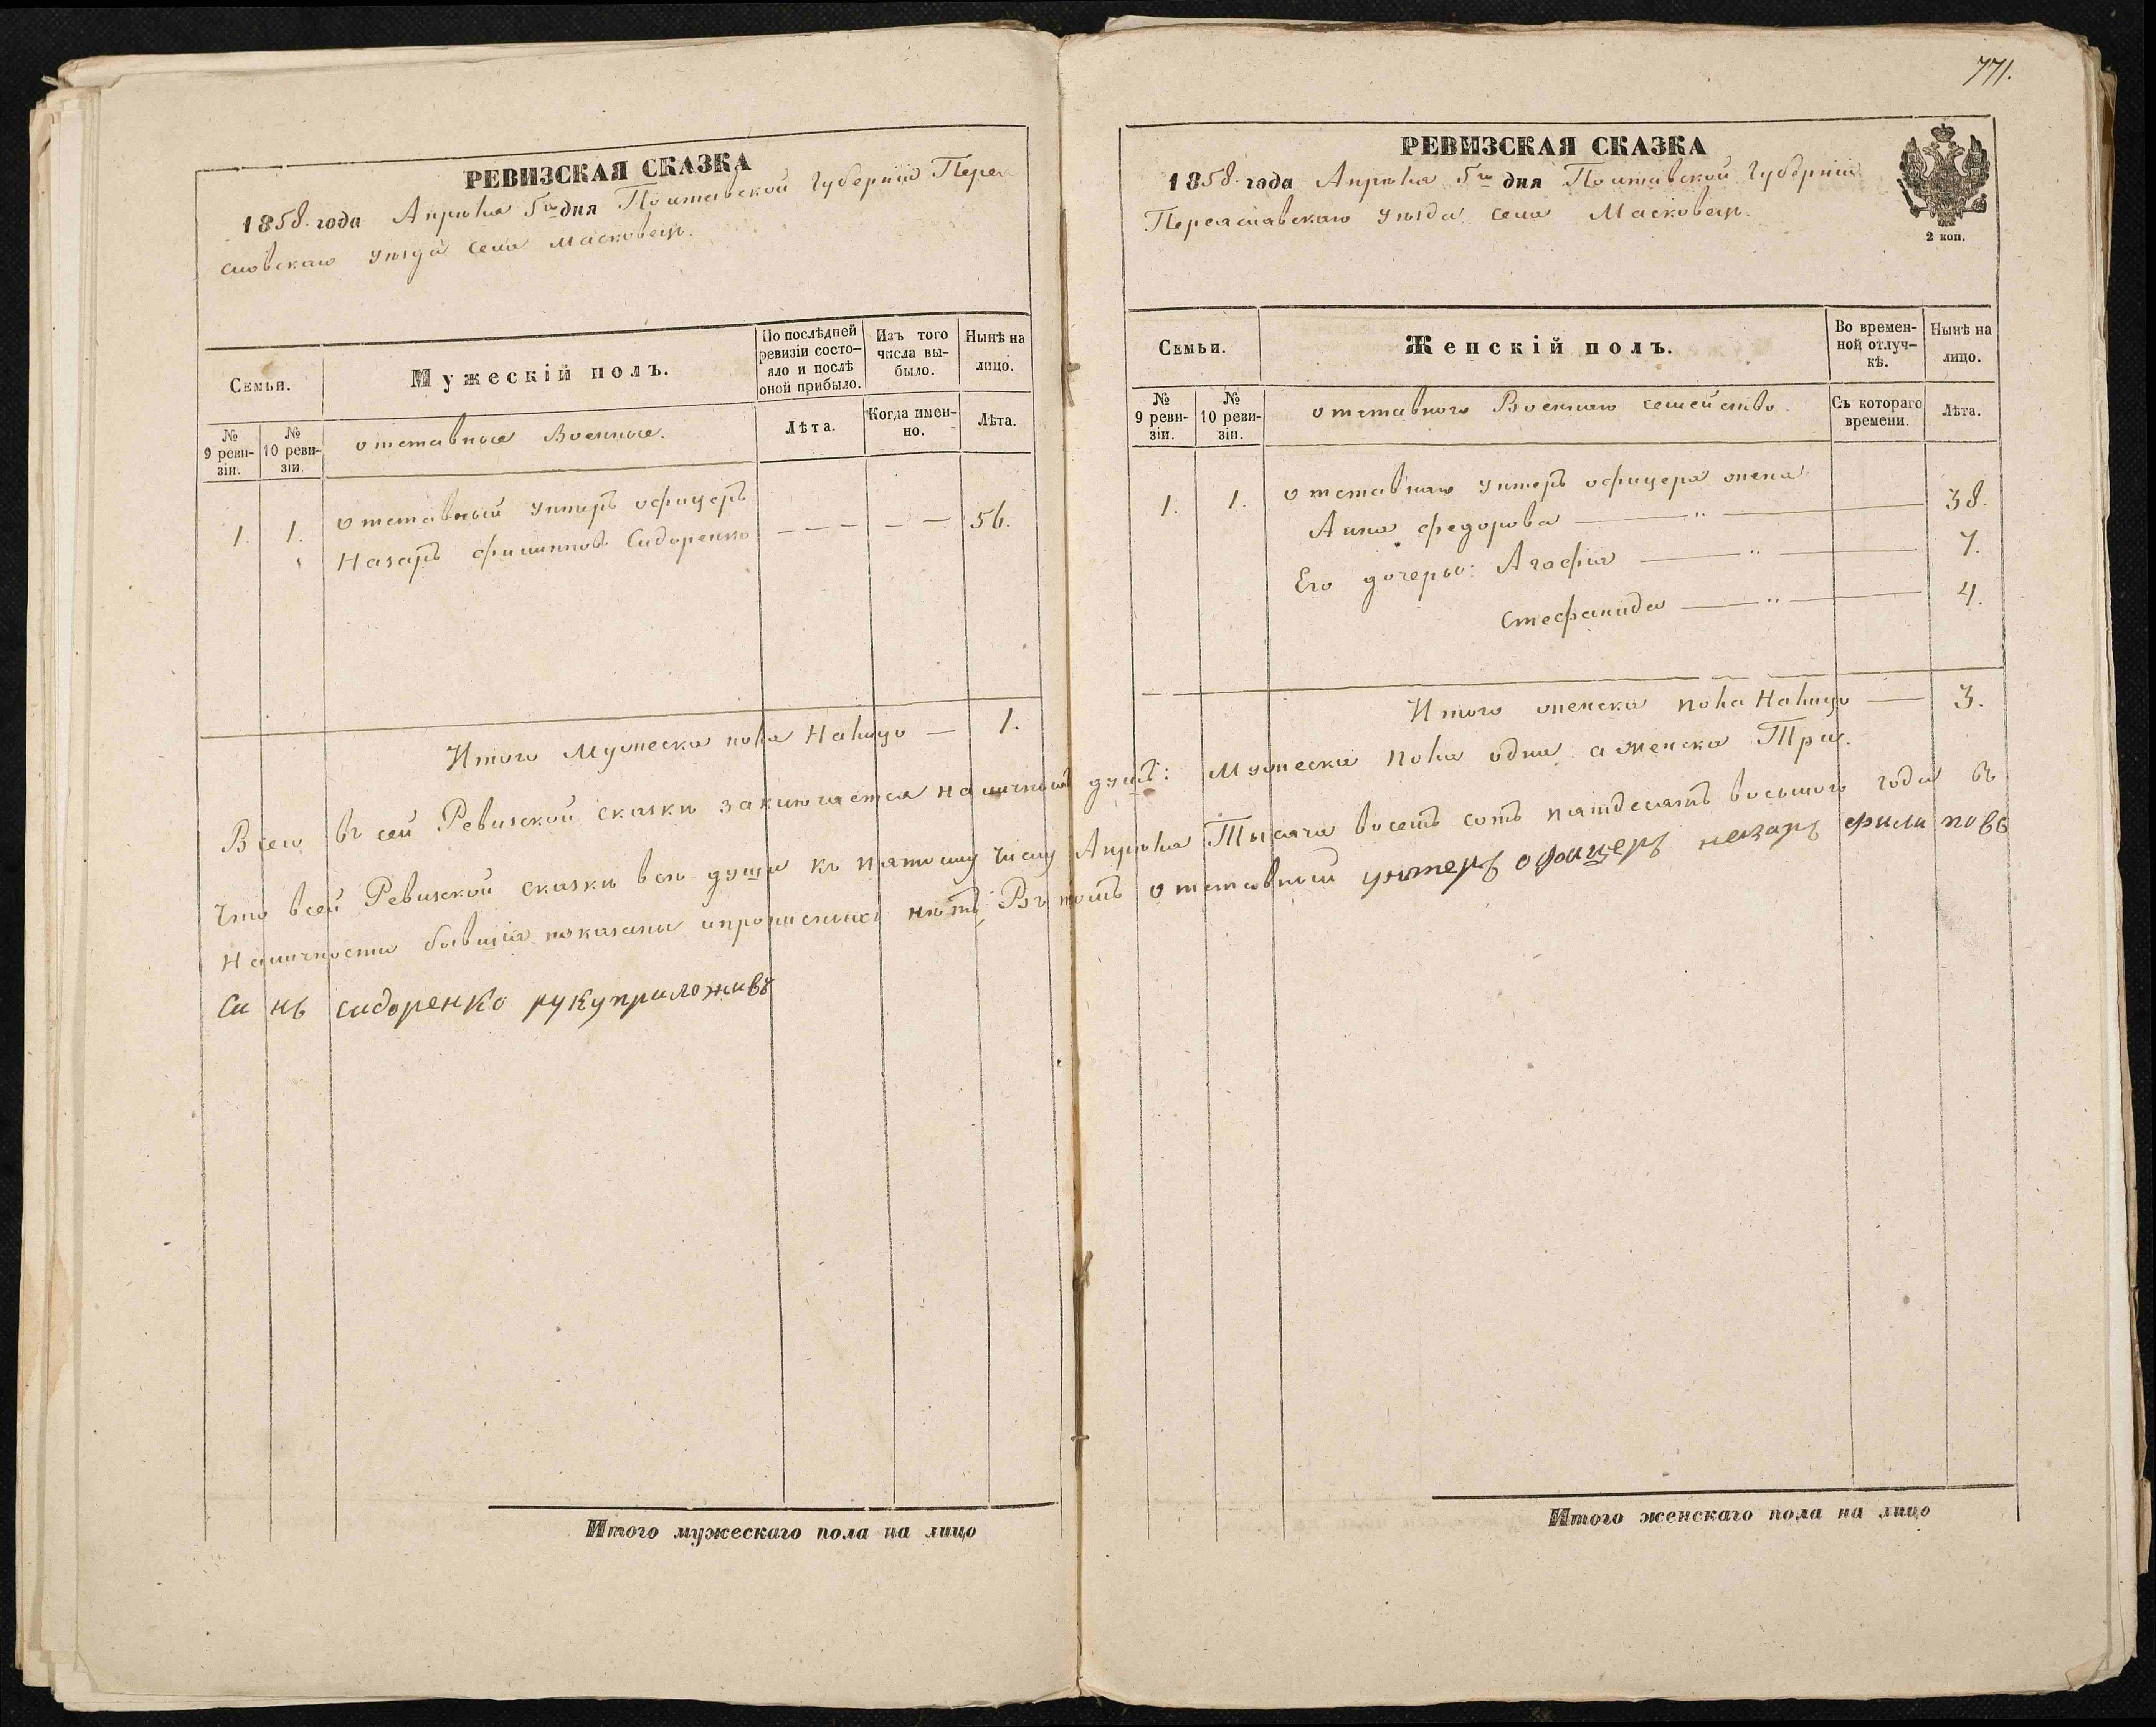 РЕВИЗСКАЯ СКАЗКА
1858 года Апрѣля 5го дня Полтавской Губерніи Перея
словскаго уѣзда села Масковец
Семьи.
Мужескій полъ.
По послѣдней ревизіи состо-
яло и послѣ оной прибыло.
Изъ того числа вы-
было.
Нынѣ на лицо.
№ 9 реви-
зіи.
№ 10 реви-
зіи.
отставные Военные.
Лѣта.
Когда имен-
но.
Лѣта.
отставный унтеръ офицеръ
1. 1. Назаръ филиповъ Сидоренко — — — — — 56.
Итого мужеска пола Налицо — 1.
771.
РЕВИЗСКАЯ СКАЗКА
1858 года Апрѣля 5го дня Полтавской Губерніи
Переяславскаго уѣзда села Масковец.
2 коп.
Семьи.
Женскій полъ.
Во времен-
ной отлуч-
кѣ.
Нынѣ на лицо.
№ 9 реви-
зіи.
№ 10 реви-
зіи.
отставного Военнаго семейство
Съ котораго времени.
Лѣта.
1. 1. отставнаго унтеръ офицера жена
Анна федорова — „ — 38.
Его дочеры: Агафия — „ — 7.
Стефанида — „ — 4.
Итого женска пола Налицо — 3.
Всего въ сей Ревизской сказки заключается наличныхъ душъ: мужеска пола одна, а женска Три.
Что всей Ревизской сказки всѣ души къ пятому числу Апрѣля Тысяча восемь сотъ пятдесятъ восьмого года въ
Наличности бывшія показаны и прописныхъ нѣтъ, Въ томъ отставный унтеръ офицеръ назаръ фили повъ
си нъ сидоренко рукуприложивъ
Итого мужескаго пола на лицо
Итого женскаго пола на лицо